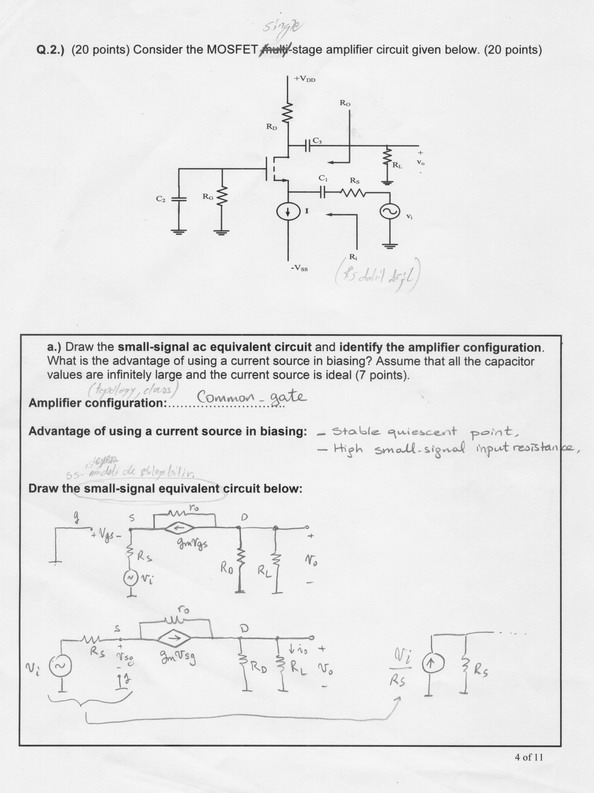 single
Q.2.) (20 points) Consider the MOSFET multi-stage amplifier circuit given below. (20 points)
+VDD
RD
RO
C3
RL
+
vo
-
C1
RS
C2
RG
I
vi
Ri
-VSS
a.) Draw the small-signal ac equivalent circuit and identify the amplifier configuration.
What is the advantage of using a current source in biasing? Assume that all the capacitor
values are infinitely large and the current source is ideal (7 points).
(topology, class)
Amplifier configuration:.....Common-gate
Advantage of using a current source in biasing: - Stable quiescent point,
- High small-signal input resistance,
Draw the small-signal equivalent circuit below:
ro
g
S
D
+ Vgs -
gmVgs
+
RS
RD
RL
Vo
Vi
-
ro
S
D
RS
Vsg
gmVsg
RD
RL
io
+
Vo
-
Vi
g
Vi
RS
RS
4 of 11